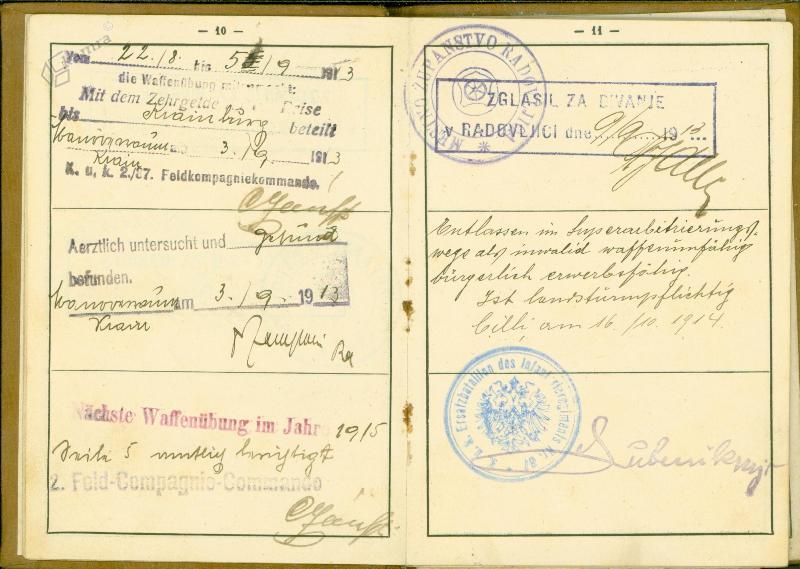 — 10 —
Kamra
Vom 22./8. bis 5/9 1913
die Waffenübung mitgemacht:
Mit dem Zehrgelde Reise
bis Krainburg beteilt
am 3./9. 1913
Krain
K. u. k. 2./87. Feldkompagniekommando.
Aerztlich untersucht und gesund
befunden.
am 3./9. 1913
Krain
Nächste Waffenübung im Jahre 1915
Seite 5 amtlich berichtigt
2. Feld-Compagnie-Commando
— 11 —
MESTNO ŽUPANSTVO RADOVLJICA
ZGLASIL ZA BIVANJE
v RADOVLJICI dne 9/9 1913
Entlassen im Superarbitrierungs-
wege als invalid waffenunfähig
bürgerlich erwerbsfähig.
Ist landsturmpflichtig
Cilli am 16./10. 1914.
K. u. k. Ersatzbataillon des Infanterieregiments Nr. 87